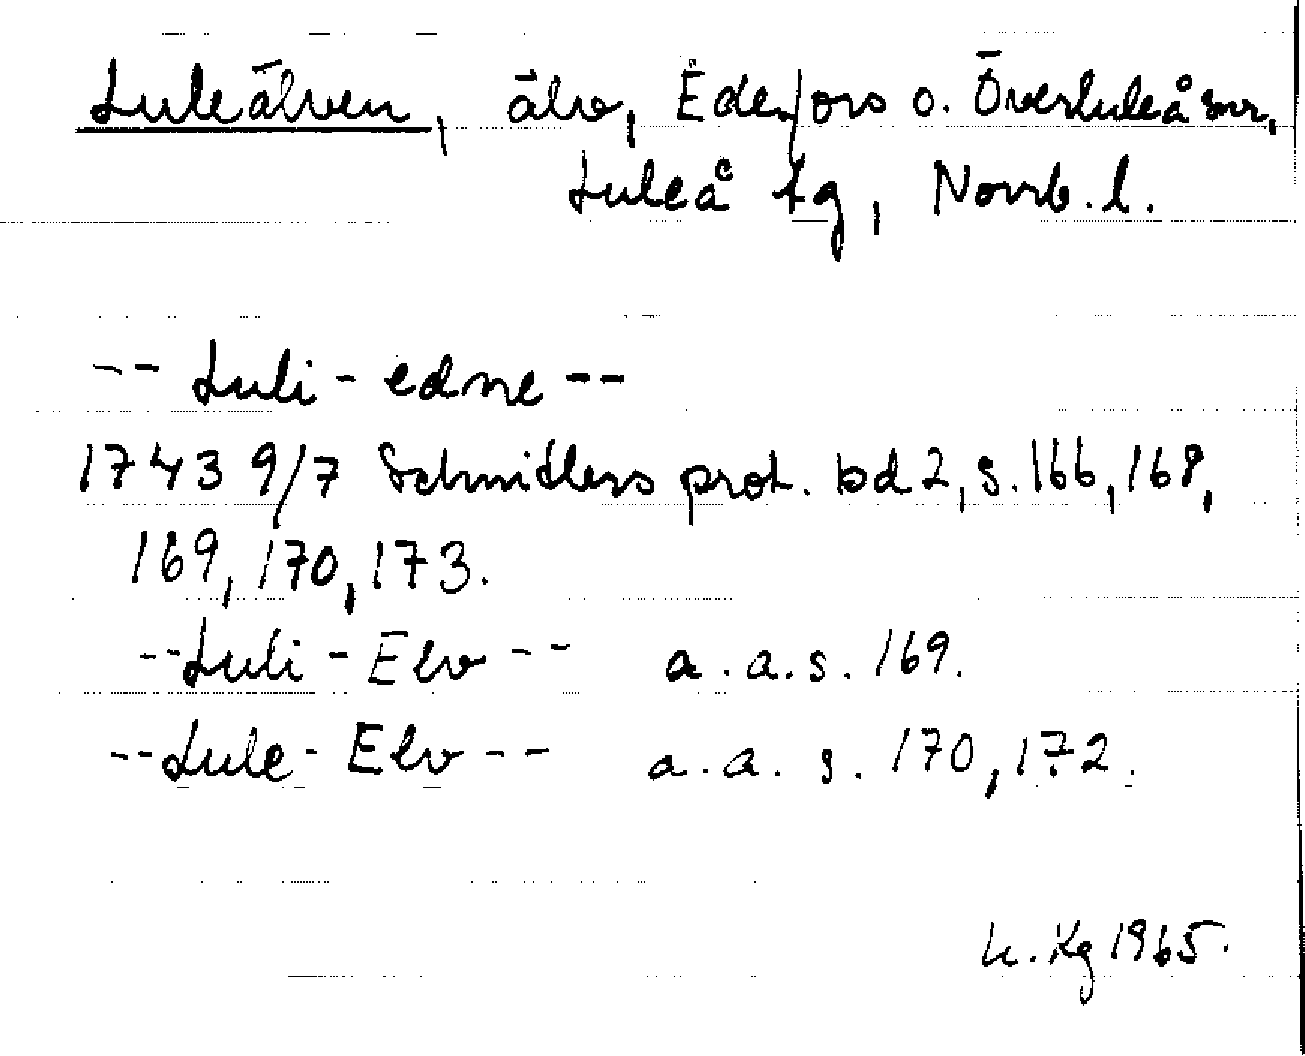 Luleälven, älv, Edefors o. Överluleå snr,
Luleå tg, Norrb. l.
-- Luli - edne --
1743 9/7 Schnitlers prot. bd 2, s. 166, 168,
169, 170, 173.
-- Luli - Elv -- a. a. s. 169.
-- Lule - Elv -- a. a. s. 170, 172.
Kg 1965.